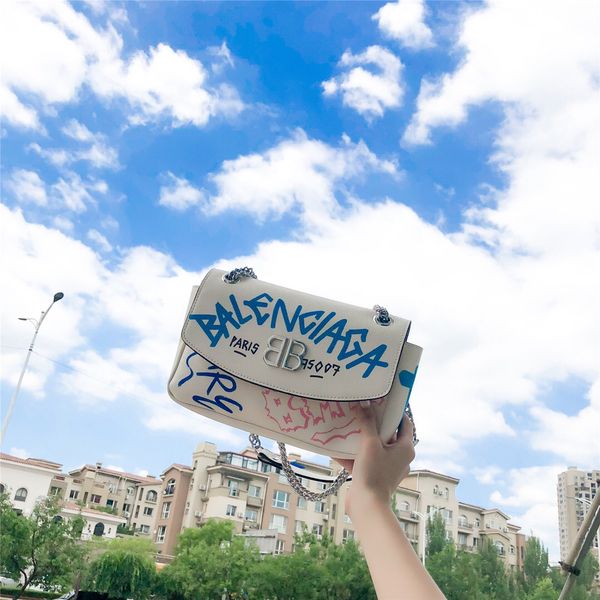 BALENCIAGA
PARIS BB 75007